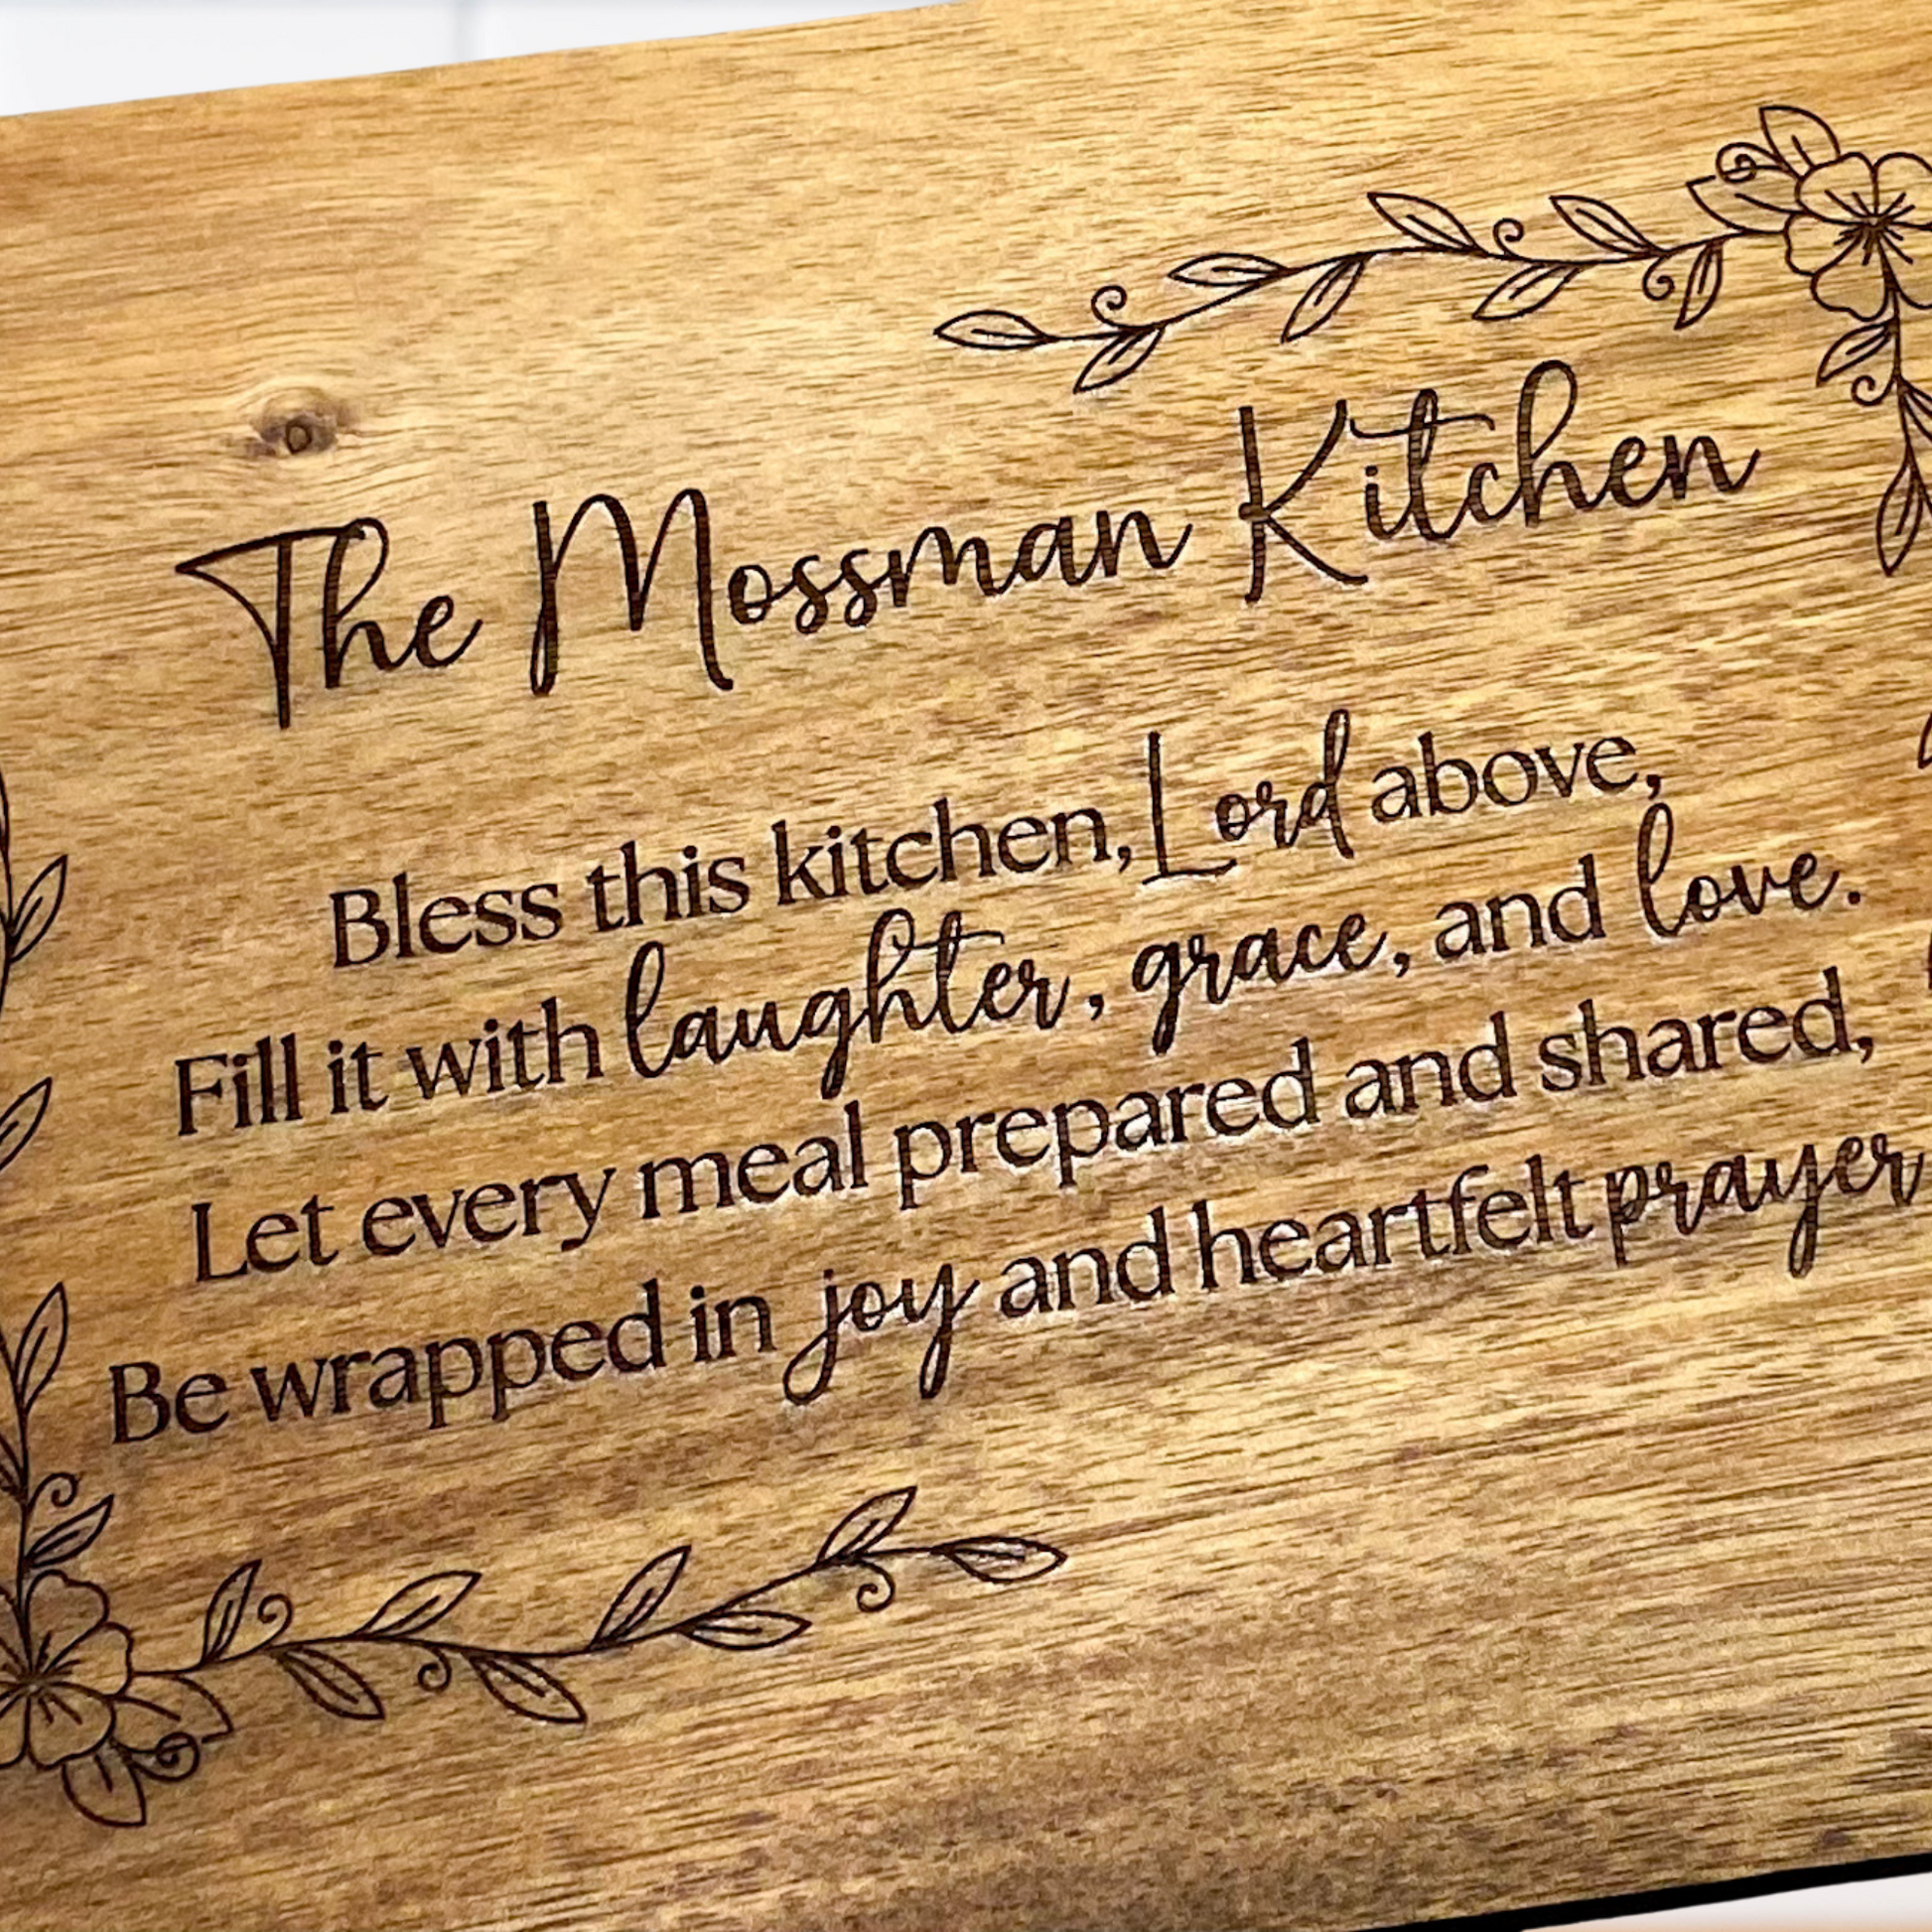 The Mossman Kitchen
Bless this kitchen, Lord above,
Fill it with laughter, grace, and love.
Let every meal prepared and shared,
Be wrapped in joy and heartfelt prayer